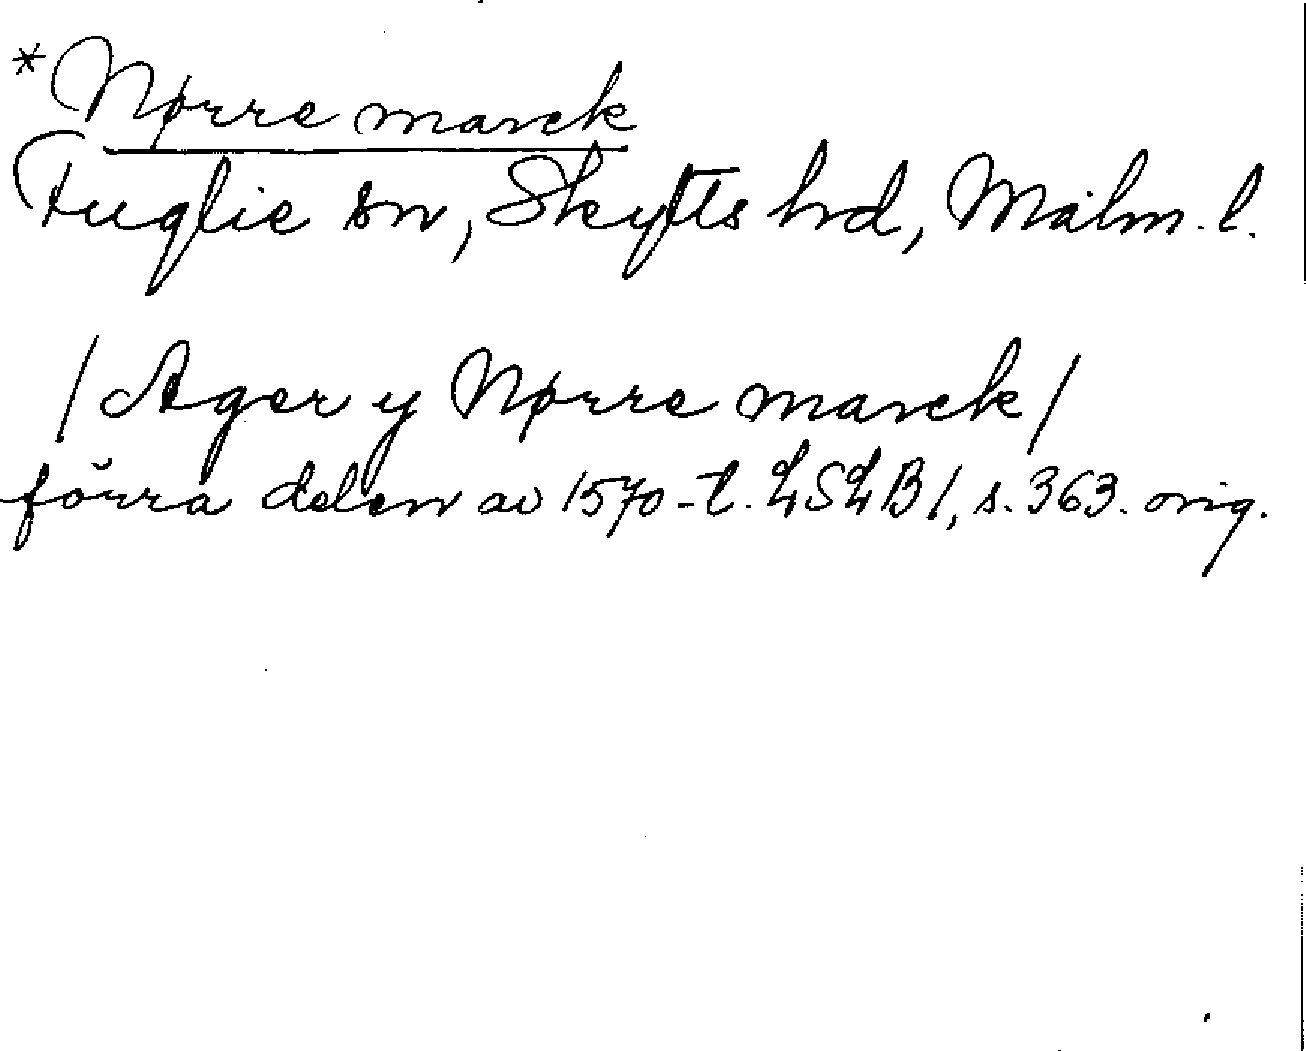 *Nørre marck
Fuglie sn, Skytts hrd, Malm. l.
/Ager y Nørre marck/
förra delen av 1570-t. LSLB 1, s. 363. orig.